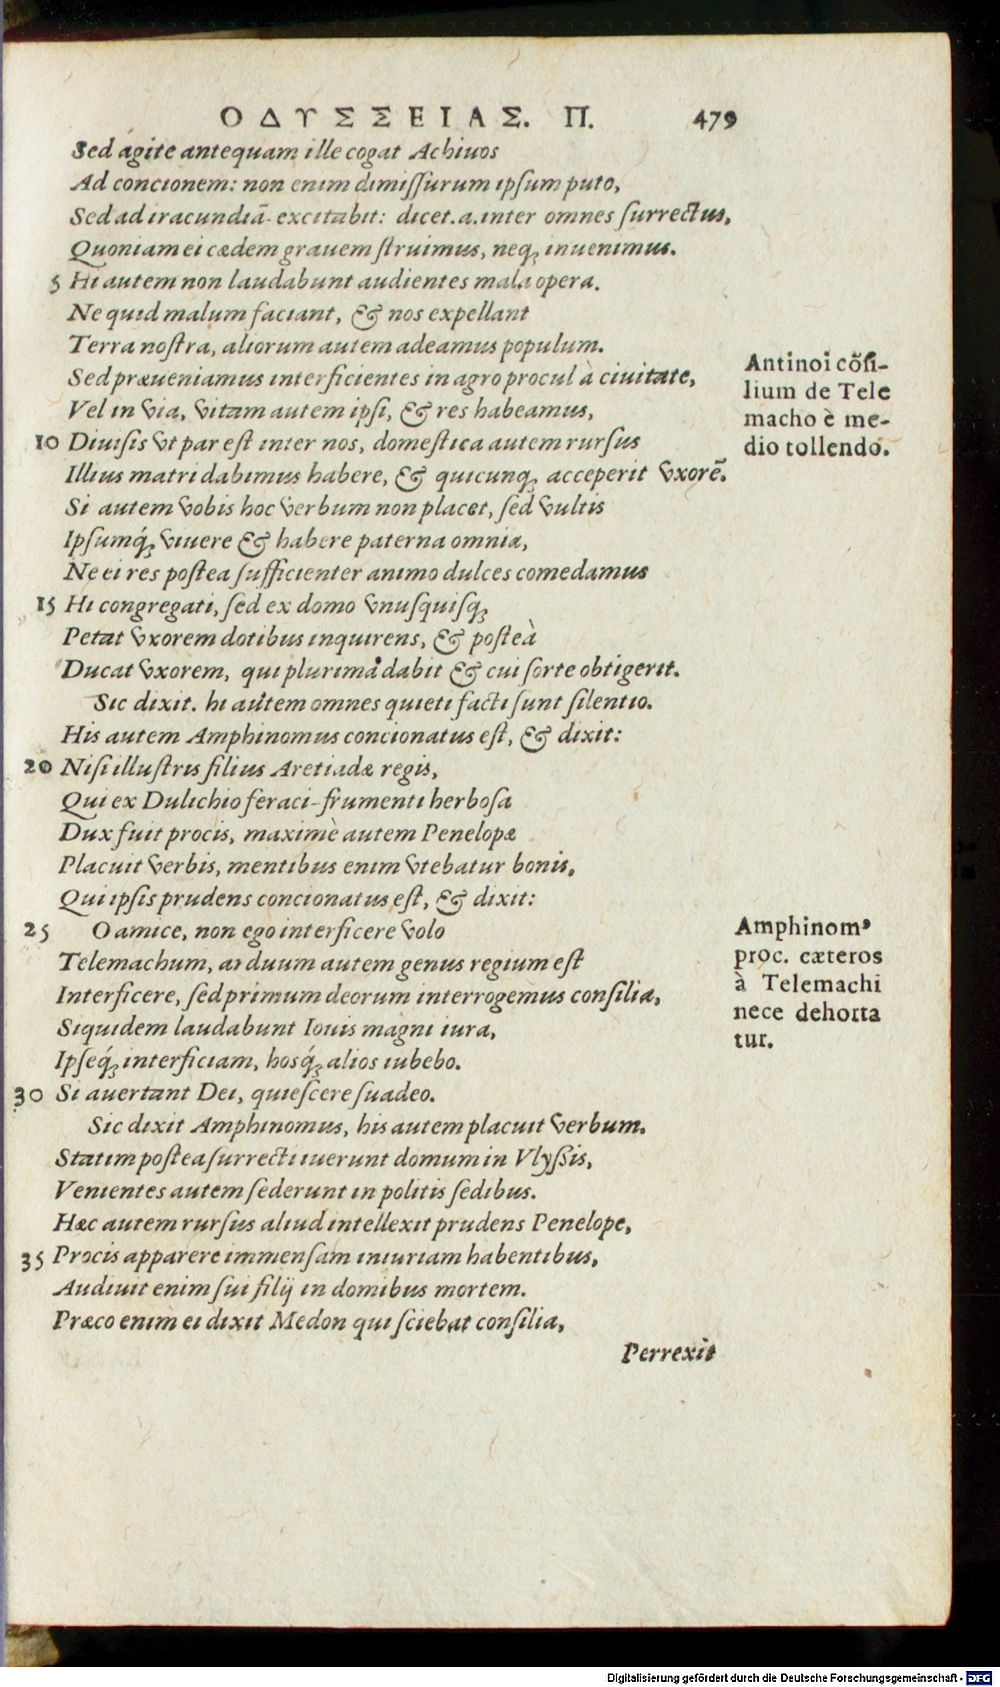 ΟΔΥΣΣΕΙΑΣ. Π. 479
Sed agite antequam ille cogat Achiuos
Ad concionem: non enim dimiſſurum ipſum puto,
Sed ad iracundiā excitabit: dicet.a.inter omnes ſurrectus,
Quoniam ei cædem grauem ſtruimus, neq; inuenimus.
5 Hi autem non laudabunt audientes mala opera.
Ne quid malum faciant, & nos expellant
Terra noſtra, aliorum autem adeamus populum.
Sed præueniamus interficientes in agro procul à ciuitate,
Vel in via, vitam autem ipſi, & res habeamus,
10 Diuiſis vt par eſt inter nos, domeſtica autem rurſus
Illius matri dabimus habere, & quicunq; acceperit vxorē.
Si autem vobis hoc verbum non placet, ſed vultis
Ipſumq́; viuere & habere paterna omnia,
Ne ei res poſtea ſufficienter animo dulces comedamus
15 Hi congregati, ſed ex domo vnuſquiſq;
Petat vxorem dotibus inquirens, & poſteà
Ducat vxorem, qui plurima dabit & cui ſorte obtigerit.
Sic dixit. hi autem omnes quieti facti ſunt ſilentio.
His autem Amphinomus concionatus eſt, & dixit:
20 Niſi illuſtris filius Aretiadæ regis,
Qui ex Dulichio feraci-frumenti herboſa
Dux fuit procis, maximè autem Penelopæ
Placuit verbis, mentibus enim vtebatur bonis,
Qui ipſis prudens concionatus eſt, & dixit:
25 O amice, non ego interficere volo
Telemachum, arduum autem genus regium eſt
Interficere, ſed primum deorum interrogemus conſilia,
Siquidem laudabunt Iouis magni iura,
Ipſeq́; interficiam, hosq́; alios iubebo.
30 Si auertant Dei, quieſcere ſuadeo.
Sic dixit Amphinomus, his autem placuit verbum.
Statim poſtea ſurrecti iuerunt domum in Vlyßis,
Venientes autem ſederunt in politis ſedibus.
Hæc autem rurſus aliud intellexit prudens Penelope,
35 Procis apparere immenſam iniuriam habentibus,
Audiuit enim ſui filij in domibus mortem.
Præco enim ei dixit Medon qui ſciebat conſilia,
Perrexit
Antinoi cōſi-
lium de Tele
macho è me-
dio tollendo.
Amphinomꝰ
proc. cæteros
à Telemachi
nece dehorta
tur.
Digitalisierung gefördert durch die Deutsche Forschungsgemeinschaft - DFG